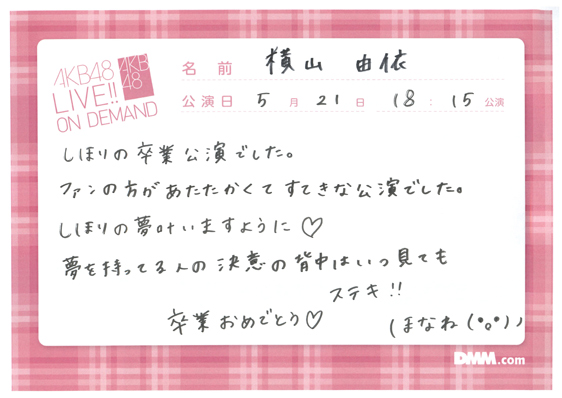 AKB48
LIVE!!
ON DEMAND
AKB
48
名前 横山 由依
公演日 5月21日 18:15公演
しほりの卒業公演でした。
ファンの方があたたかくて すてきな公演でした。
しほりの夢叶いますように♡
夢を持ってる人の決意の背中はいつ見ても
ステキ!!
卒業おめでとう♡
(ほなね(•o•)ノ
DMM.com